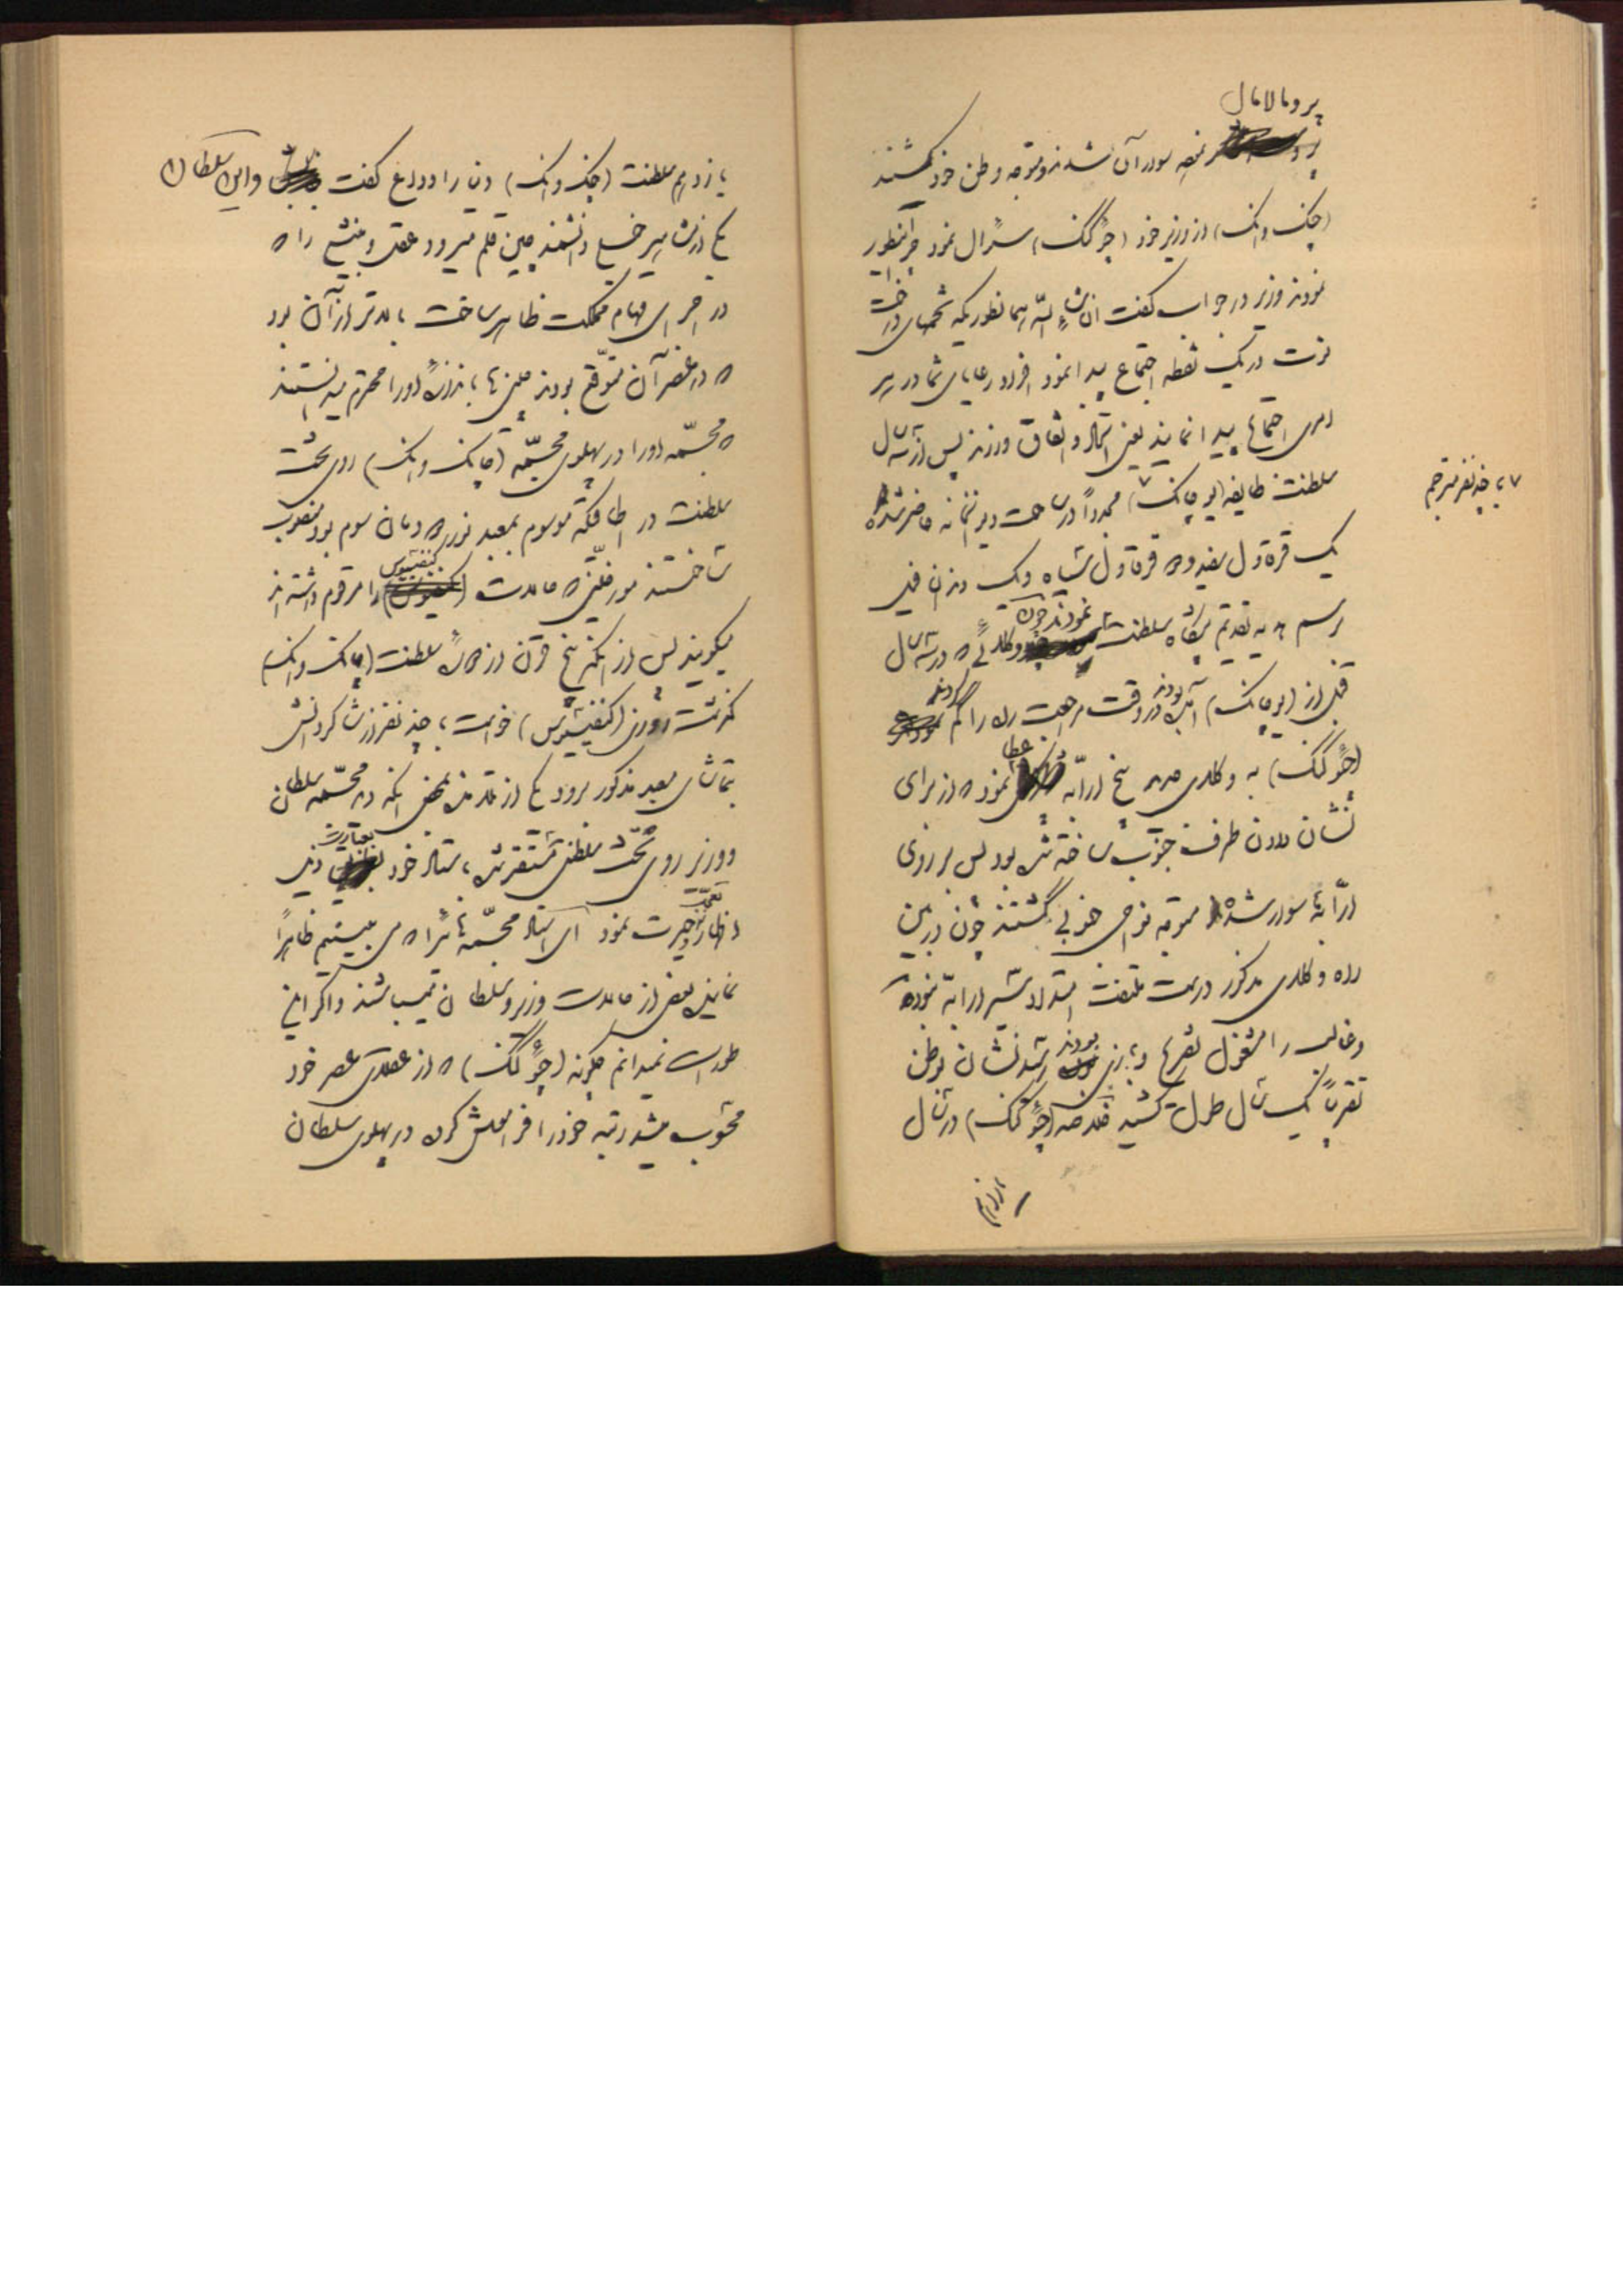 پر و مالامال
بقصد سوار آن شدند و متوجه وطن خود گشتند
(چنک وانک) از وزیر خود (جوکنک) سؤال نمود چرا اینطور
نمودند وزیر در جواب گفت ان شاء الله همانطوریکه تخمهای درخت
توت در یک نقطه اجتماع پیدا نمود افراد رعایای شما در هر
امری اجتماع پیدا نمایند یعنی اتحاد و اتفاق ورزند پس از سه سال
سلطنت طایفه (یوچانک) مجدداً در ساحت دیوانخانه حاضر شده
۷ با چند نفر مترجم
یک قرقاول سفید و دو قرقاول سیاه و یک دندان فیل
برسم هدیه تقدیم پیشگاه سلطنت نمودند چون وکلائی که در سه سال
قبل از (یوچانک) آمده بودند در وقت مراجعت راه را گم کردند
(جوکنک) به وکلای جدید پنج ارابه عطا نمود که از برای
نشان دادن طرف جنوب ساخته شده بود پس بر روی
ارابه‌ها سوار شده متوجه نواحی جنوبی گشتند چون در بین
راه وکلای مذکور درست ملتفت امتداد سیر ارابه نبوده
و غالب را مشغول تفریح و بازی بودند رسیدنشان بوطن
تقریباً یک سال طول کشید خلاصه (جوکنک) در سال
یازدهم
یازدهم سلطنت (چنک وانک) دنیا را وداع گفت و این سلطان
یکی از مشاهیر دانشمند چین قلم میرود عقل و بینشی را که
در اجرای مهام مملکت ظاهر ساخت بالاتر از آن بود
که در عصر آن متوقع بودند چینی‌ها باندازهٔ او را محترم میدانستند
که مجسمه او را در پهلوی مجسمه (چانک وانک) روی تخت
سلطنت در اطاقیکه موسوم بمعبد نور دودمان سوم بود منصوب
ساختند مورخینی که حالات (کنفسیوس) را مرقوم داشته‌اند
میگویند پس از آنکه پنج قرن از زمان سلطنت (چانک وانک)
گذشت روزی (کنفسیوس) خواست با چند نفر از شاگردانش
بتماشای معبد مذکور برود یکی از تلامذه بمحض اینکه دید مجسمه سلطان
و وزیر روی تخت سلطنتی مستقر شده باستاد خود بعبارت ذیل
اظهار تعجب و حیرت نمود ای استاد مجسمه‌هائی را که می‌بینیم ظاهراً
نماینده بعضی از حالات وزیر و سلطان میباشند و اگر این
طور است نمیدانم چگونه (جوکنک) که از عقلای عصر خود
محسوب میشد رتبه خود را فراموش کرده در پهلوی سلطان